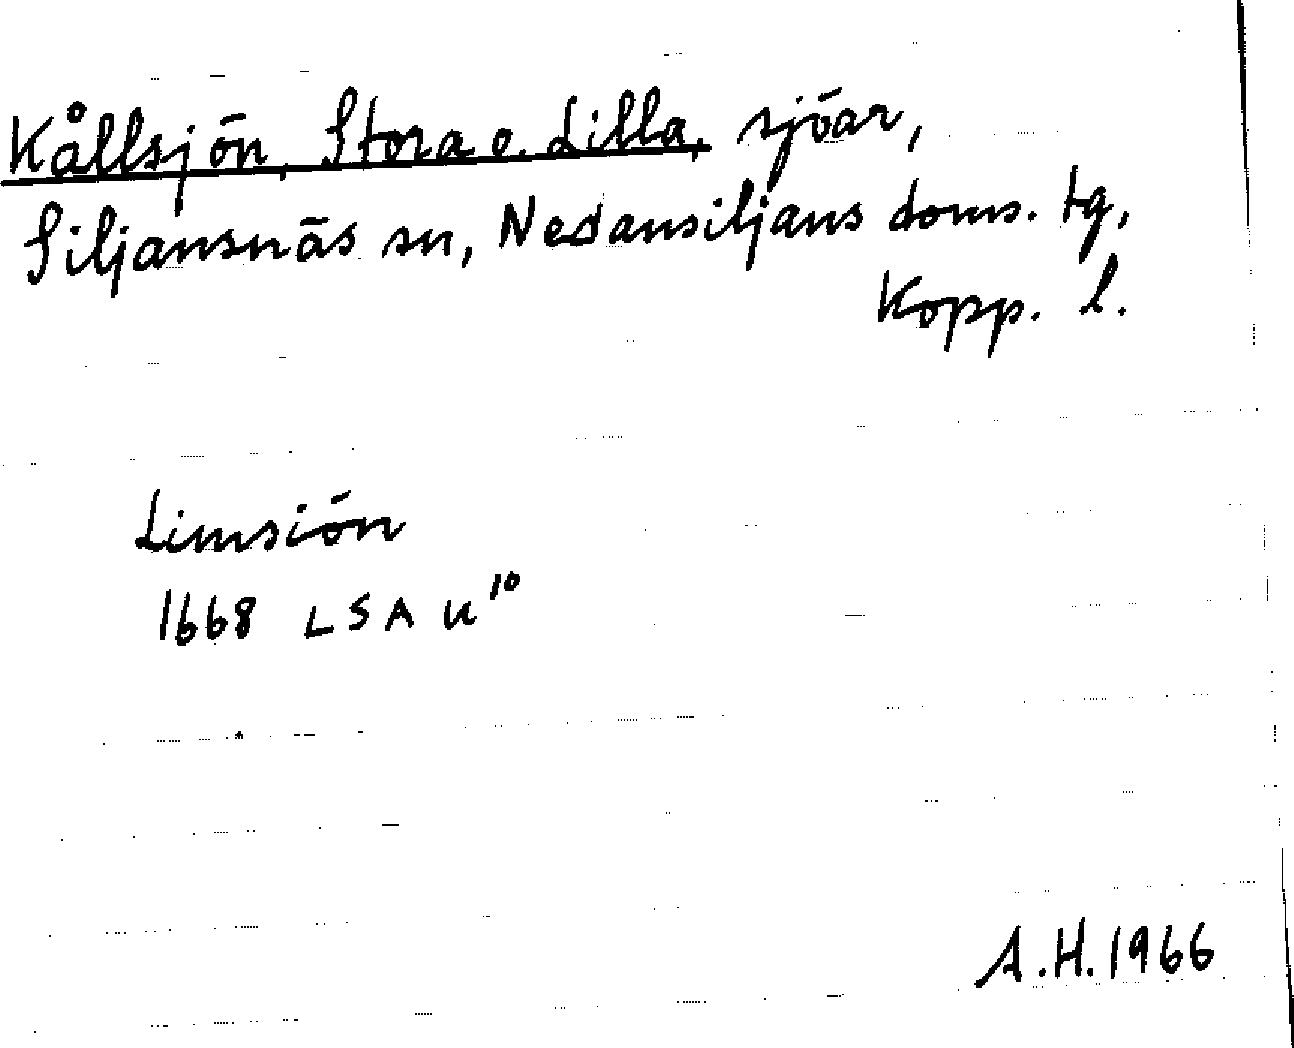 Kållsjön, Stora o. Lilla, sjöar,
Siljansnäs sn, Nedansiljans doms. tg,
Kopp. l.
Limsiön
1668 LSA U¹⁰
A.H. 1966